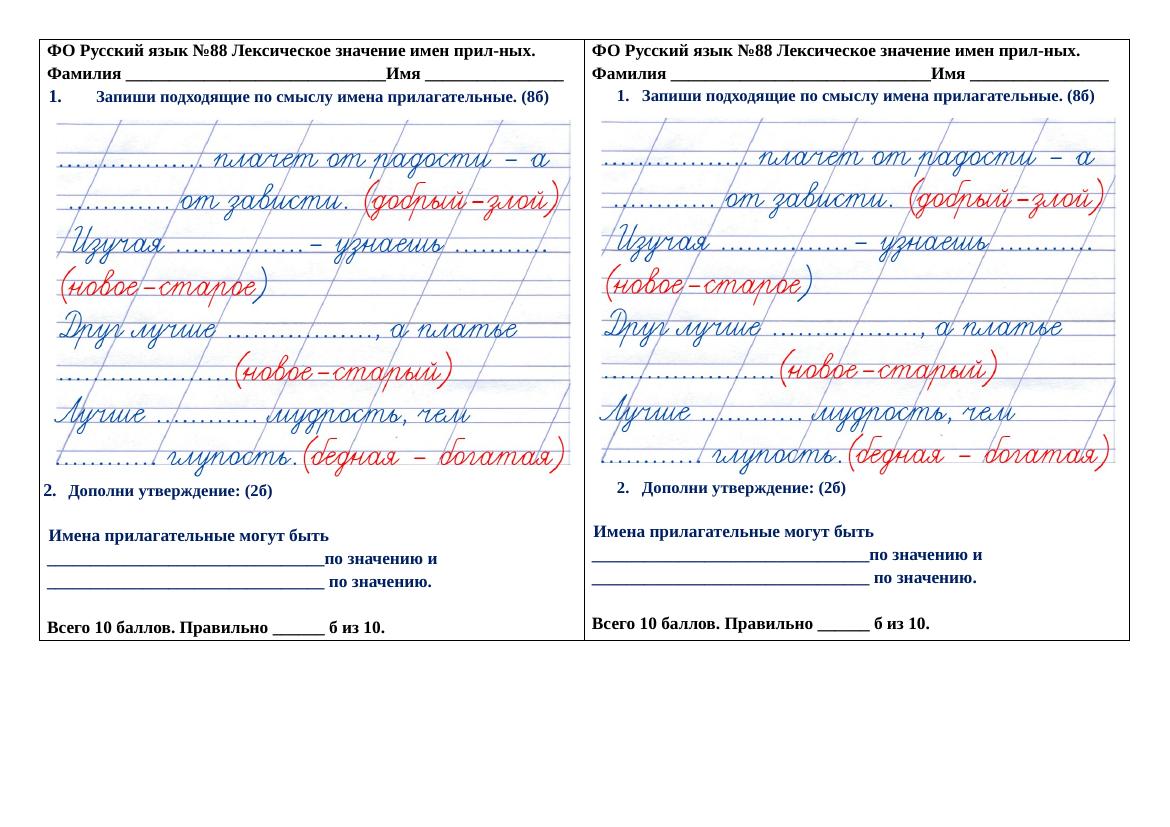 ФО Русский язык №88 Лексическое значение имен прил-ных.
Фамилия ______________________________Имя ________________
1. Запиши подходящие по смыслу имена прилагательные. (8б)
................ плачет от радости – а
............ от зависти. (добрый – злой)
Изучая .............. – узнаешь ..........
(новое – старое)
Друг лучше ................, а платье
...................(новое – старый)
Лучше ........... мудрость, чем
........... глупость. (бедная – богатая)
2. Дополни утверждение: (2б)
Имена прилагательные могут быть
________________________________по значению и
________________________________ по значению.
Всего 10 баллов. Правильно ______ б из 10.
ФО Русский язык №88 Лексическое значение имен прил-ных.
Фамилия ______________________________Имя ________________
1. Запиши подходящие по смыслу имена прилагательные. (8б)
................ плачет от радости – а
............ от зависти. (добрый – злой)
Изучая .............. – узнаешь ..........
(новое – старое)
Друг лучше ................, а платье
...................(новое – старый)
Лучше ........... мудрость, чем
........... глупость. (бедная – богатая)
2. Дополни утверждение: (2б)
Имена прилагательные могут быть
________________________________по значению и
________________________________ по значению.
Всего 10 баллов. Правильно ______ б из 10.